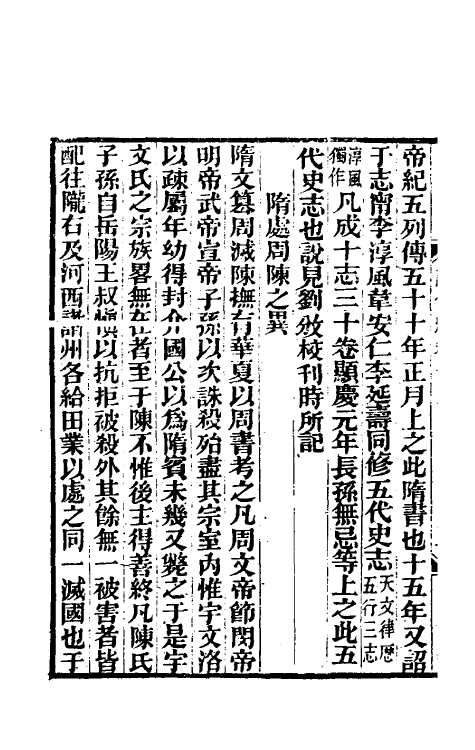 帝紀五列傳五十十年正月上之此隋書也十五年又詔
于志甯李淳風韋安仁李延壽同修五代史志天文律歷五行三志
淳風獨作凡成十志三十卷顯慶元年長孫無忌等上之此五
代史志也說見劉攽校刊時所記
隋處周陳之異
隋文篡周滅陳撫有華夏以周書考之凡周文帝節閔帝
明帝武帝宣帝子孫以次誅殺殆盡其宗室內惟宇文洛
以疎屬年幼得封介國公以爲隋賓未幾又斃之于是宇
文氏之宗族畧無在者至于陳不惟後主得善終凡陳氏
子孫自岳陽王叔愼以抗拒被殺外其餘無一被害者皆
配往隴右及河西諸州各給田業以處之同一滅國也于